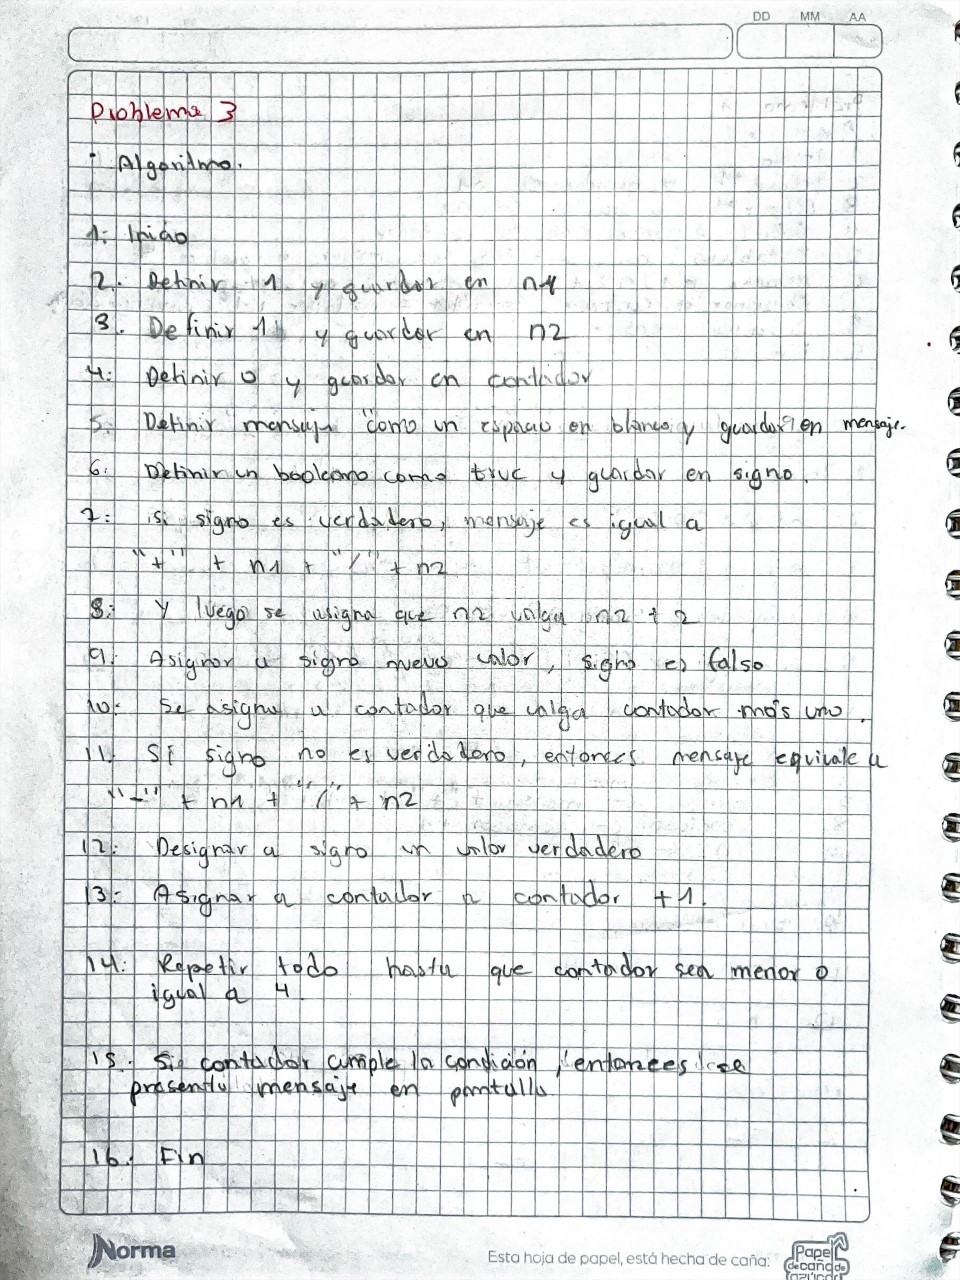 DD MM AA
Problema 3
· Algoritmo.
1: Inicio
2.- Definir 1 y guardar en n1
3. Definir 1 y guardar en n2
4: Definir 0 y guardar en contador
5. Definir mensaje como un espacio en blanco y guardar en mensaje.
6. Definir un booleano como true y guardar en signo.
7: Si signo es verdadero, mensaje es igual a
"+" + n1 + "/" + n2
8: Y luego se asigna que n2 valga n2 + 2
9. Asignar a signo nuevo valor, signo es falso
10: Se asigna a contador que valga contador más uno.
11. Si signo no es verdadero, entonces mensaje equivale a
"-" + n1 + "/" + n2
12: Designar a signo un valor verdadero
13: Asignar a contador a contador +1.
14: Repetir todo hasta que contador sea menor o
igual a 4.
15. Si contador cumple la condición, entonces se
presenta mensaje en pantalla
16. Fin
Norma
Esta hoja de papel, está hecha de caña:
Papel
de caña de
azúcar